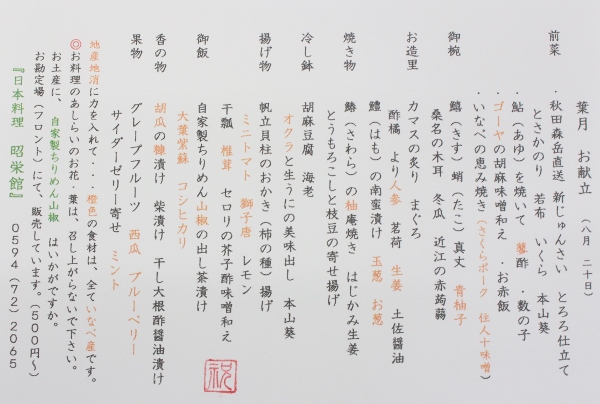 葉月　お献立　（八月　二十日）
前菜　・秋田森岳直送　新じゅんさい　とろろ仕立て
とさかのり　若布　いくら　本山葵
・鮎（あゆ）を焼いて　蓼酢　・数の子
・ゴーヤの胡麻味噌和え　・お赤飯
・いなべの恵み焼き（さくらポーク　住人十味噌）
御椀　鱚（きす）　蛸（たこ）真丈　青柚子
桑名の木耳　冬瓜　近江の赤蒟蒻
お造里　カマスの炙り　まぐろ
酢橘　より人参　茗荷　生姜　土佐醤油
鱧（はも）の南蛮漬け　玉葱　お葱
焼き物　鰆（さわら）の柚庵焼き　はじかみ生姜
とうもろこしと枝豆の寄せ揚げ
冷し鉢　胡麻豆腐　海老
オクラと生うにの美味出し　本山葵
揚げ物　帆立貝柱のおかき（柿の種）揚げ
ミニトマト　獅子唐　レモン
干瓢　椎茸　セロリの芥子酢味噌和え
御飯　自家製ちりめん山椒の出し茶漬け
大葉紫蘇　コシヒカリ
香の物　胡瓜の糠漬け　柴漬け　干し大根酢醤油漬け
果物　グレープフルーツ　西瓜　ブルーベリー
サイダーゼリー寄せ　ミント
地産地消に力を入れて・・・橙色の食材は、全ていなべ産です。
◎お料理のあしらいのお花・葉は、召し上がらないで下さい。
お土産に、自家製ちりめん山椒　はいかがですか。
お勘定場（フロント）にて、販売しています。（５００円〜）
『日本料理　昭栄館』　０５９４（７２）２０６５
祝